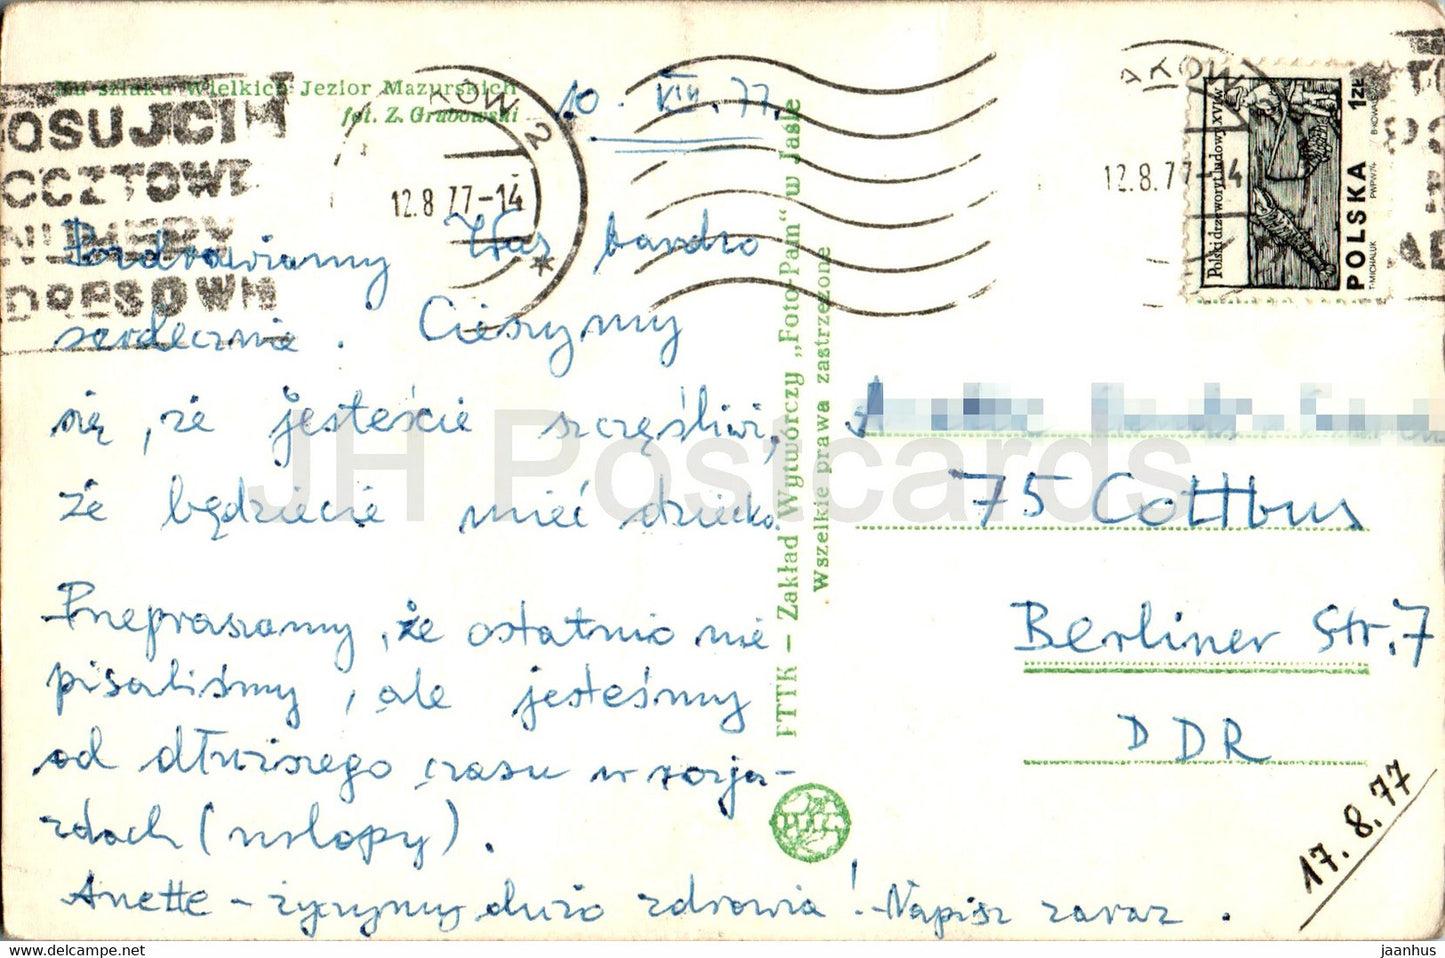 Na szlaku Wielkich Jezior Mazurskich
fot. Z. Grabowski
10. VIII. 77.
Pozdrawiamy Was bardzo
serdecznie. Cieszymy
się, że jesteście szczęśliwi,
że będziecie mieć dziecko.
Przepraszamy, że ostatnio nie
pisaliśmy, ale jesteśmy
od dłuższego czasu w rozja-
zdach (urlopy).
Anette - życzymy dużo zdrowia! Napisz zaraz.
FTTK - Zakład Wytwórczy „Foto-Pam" w Jaśle
Wszelkie prawa zastrzeżone
OSUJCIE
OCZTOWE
NUMERY
ADRESOWE
AKÓW 2
12.8.77-14
AKÓW
12.8.77-14
Polskie drzeworyt ludowy XVI w.
POLSKA
1 ZŁ
T. MICHALUK PWPW/76
75 Cottbus
Berliner Str. 7
DDR
17.8.77
JH Postcards
www.hippostcard.com
jaanhus